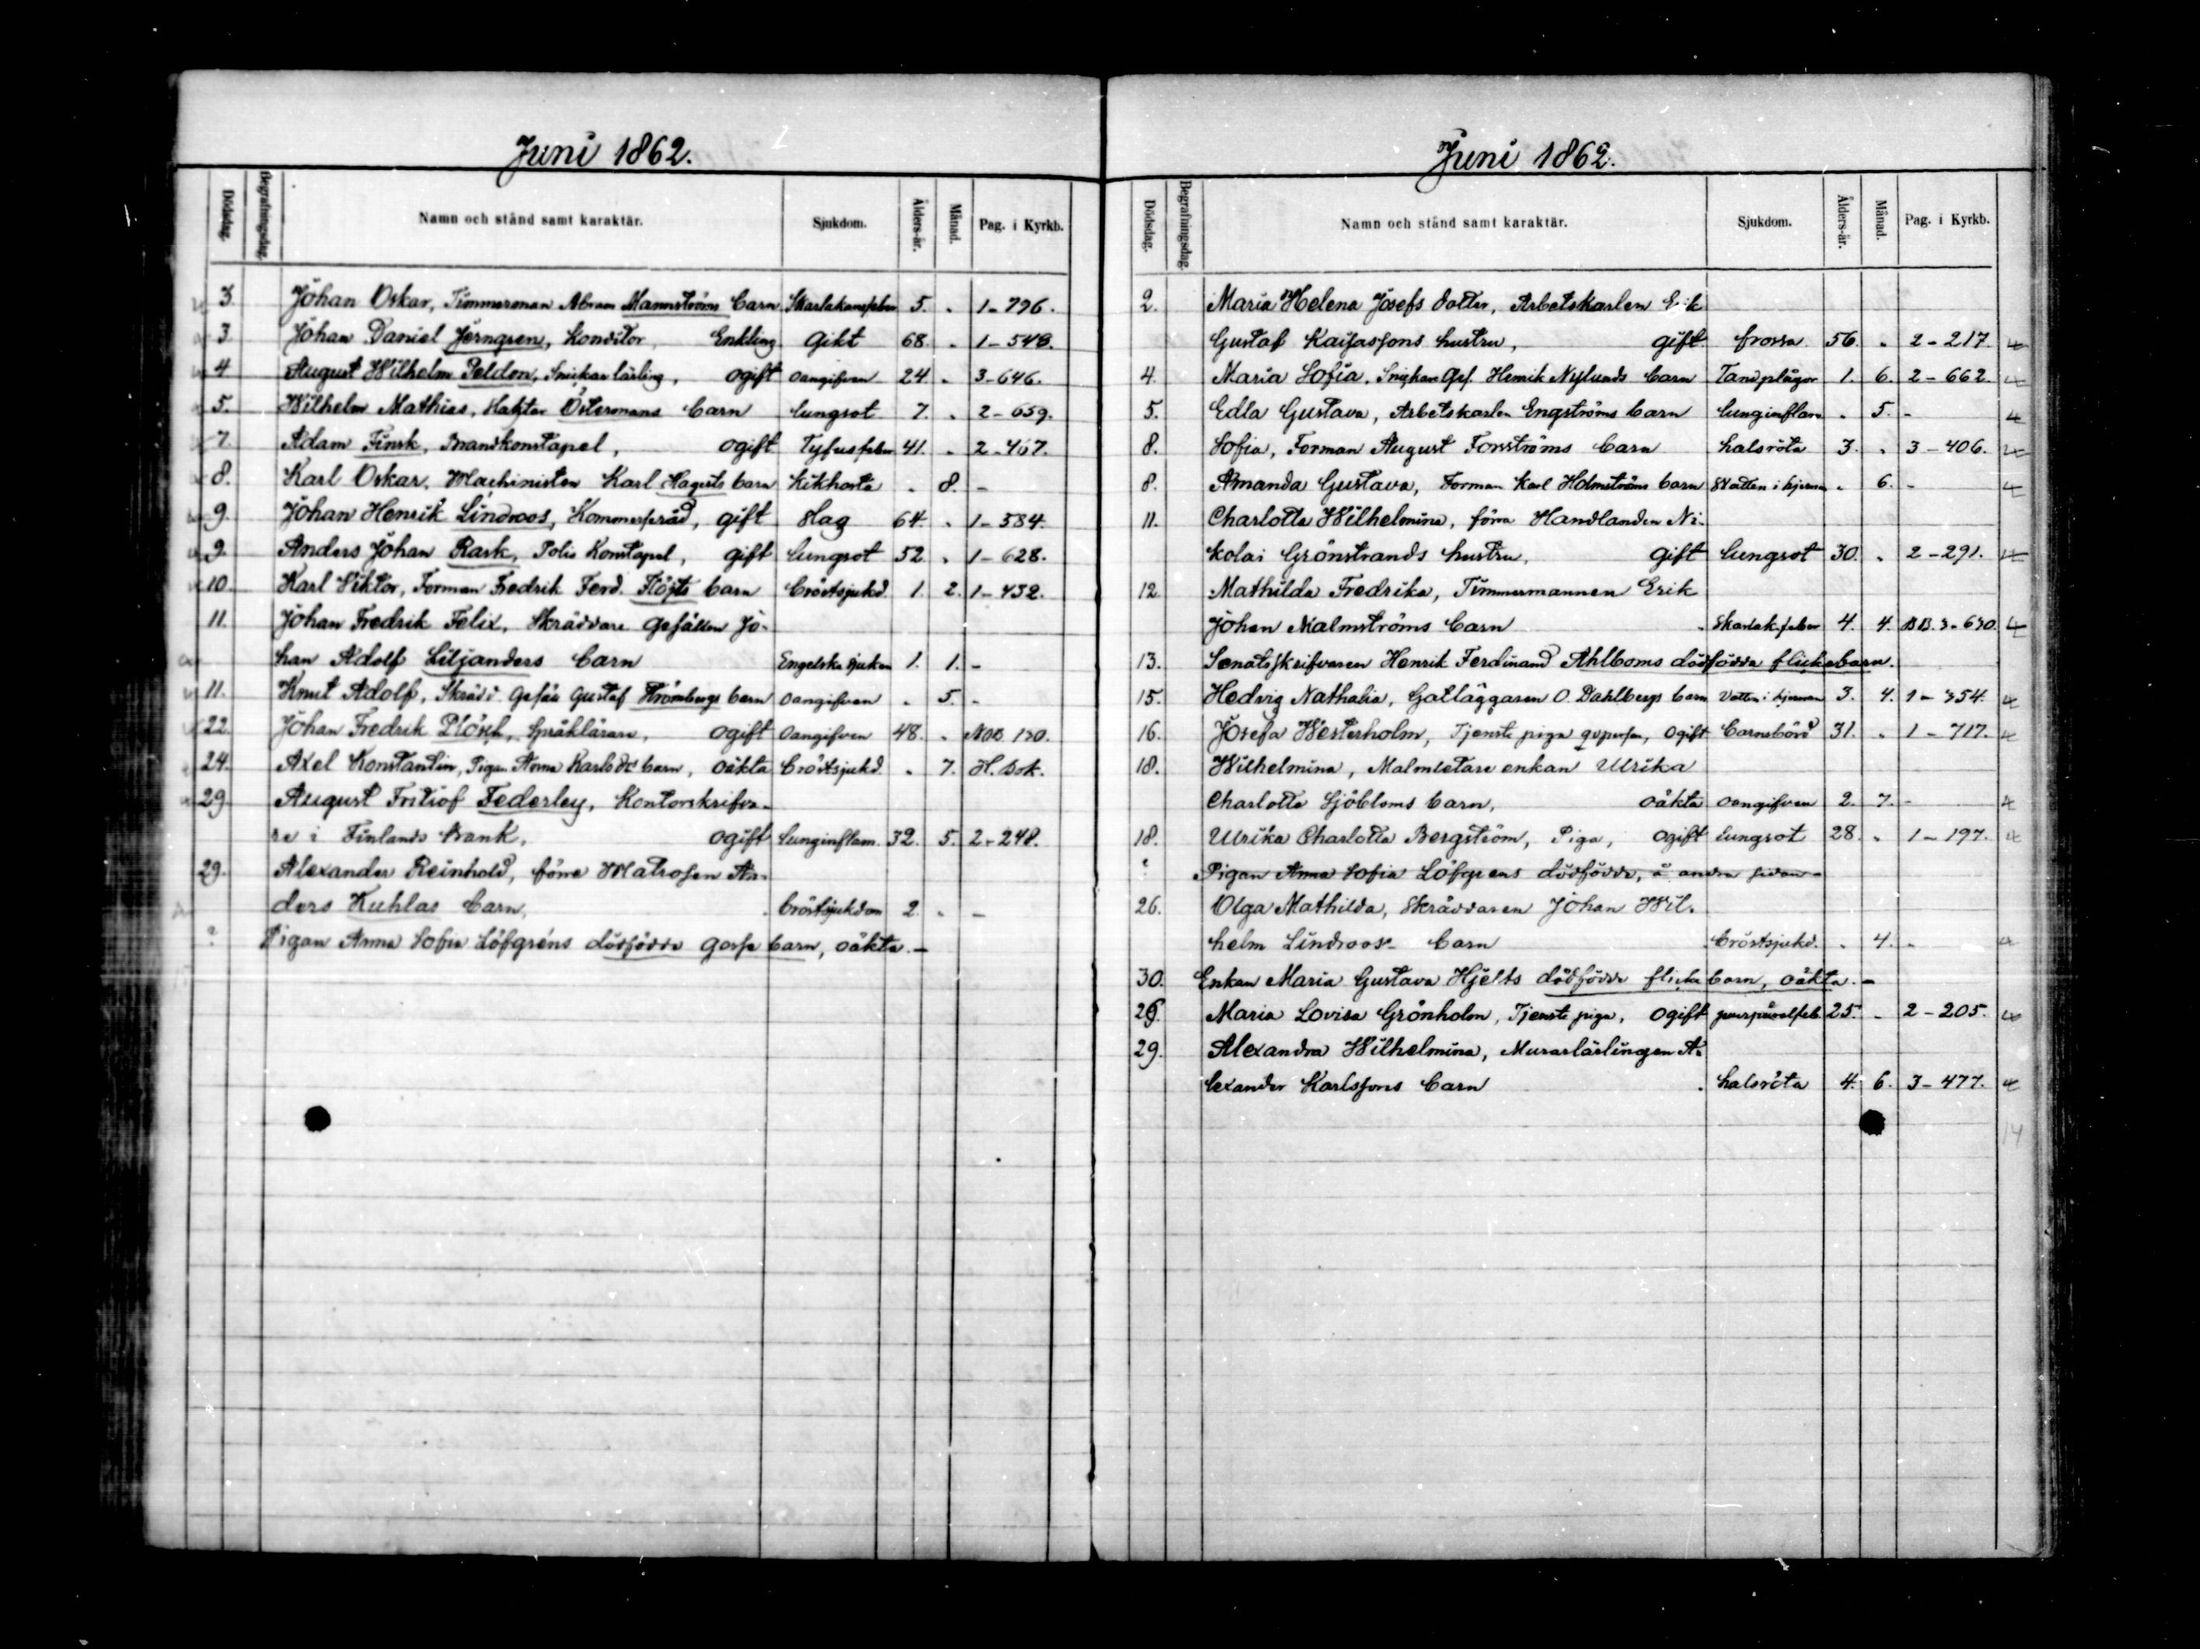 Juni 1862.
Dödsdag. Begrafningsdag. Namn och stånd samt karaktär. Sjukdom. Ålders-år. Månad. Pag. i Kyrkb.
3. Johan Oskar, Timmerman Abram Mannströms barn Skarlakansfeber 5. " 1-796.
3. Johan Daniel Jerngren, Konditor, Enkling gikt 68. " 1-548.
4. August Wilhelm Peldon, Snickarlärling, ogift oangifven 24. " 3-646.
5. Wilhelm Mathias, Haktar Östermans barn lungsot 7. " 2-659.
7. Adam Finsk, Brandkonstapel, ogift Tyfusfeber 41. " 2-467.
8. Karl Oskar, Machinisten Karl Hagerts barn kikhosta " 8. -
9. Johan Henrik Lindroos, Kommerseråd, gift slag 64. " 1-584.
9. Anders Johan Rask, Polis Konstapel, gift lungsot 52. " 1-628.
10. Karl Viktor, Forman Fredrik Ferd. Flöjts barn bröstsjukd. 1. 2. 1-432.
11. Johan Fredrik Felix, Skräddare Gesällen Jo-
han Adolf Liljanders barn Engelska sjukan 1. 1. -
11. Knut Adolf, Skrädd. Gesäll Gustaf Strömbergs barn oangifven " 5. -
22. Johan Fredrik Plösch, Språklärare, ogift oangifven 48. " NOB 120.
24. Axel Konstantin, Pigan Anna Karlsdtr barn, oäkta bröstsjukd. " 7. H. Bok.
29. August Fritiof Federley, Kontorskrifva-
re i Finlands Bank, ogift lunginflam. 32. 5. 2-248.
29. Alexander Reinhold, förre Matrosen An-
ders Kuhlas barn, bröstsjukdom 2. " -
? Pigan Anna Sofia Löfgréns dödfödda gosse barn, oäkta.-
Juni 1862.
Dödsdag. Begrafningsdag. Namn och stånd samt karaktär. Sjukdom. Ålders-år. Månad. Pag. i Kyrkb.
2. Maria Helena Josefs dotter, Arbetskarlen Erik
Gustaf Kaijassons hustru, gift frossa 56. " 2-217.
4. Maria Sofia, Snickare Ges. Henrik Nylunds barn Tandplågor 1. 6. 2-662.
5. Edla Gustava, Arbetskarlen Engströms barn lunginflam " 5. -
8. Sofia, Forman August Forsströms barn halsröta 3. " 3-406.
8. Amanda Gustava, Forman Karl Holmströms barn Watten i hjernan " 6. -
11. Charlotta Wilhelmina, förra Handlanden Ni-
kolai Grönstrands hustru, gift lungsot 30. " 2-291.
12. Mathilda Fredrika, Timmermannen Erik
Johan Malmströms barn Skarlak.feber 4. 4. BB. 3-630.
13. Senatsskrifvaren Henrik Ferdinand Ahlboms dödfödda flickebarn.
15. Hedvig Nathalia, Gatläggaren O. Dahlbergs barn Vatten i hjernan 3. 4. 1-354.
16. Josefa Westerholm, Tjenste piga, ogift barnsbörd 31. " 1-717.
18. Wilhelmina, Malmletare enkan Ulrika
Charlotta Sjöbloms barn, oäkta oangifven 2. 7. -
18. Ulrika Charlotta Bergström, Piga, ogift lungsot 28. " 1-197.
? Pigan Anna Sofia Löfgrens dödfödda, å andra sidan-
26. Olga Mathilda, Skräddaren Johan Wil-
helm Lindroos barn bröstsjukd. " 4. -
30. Enkan Maria Gustava Hjelts dödfödda flicka barn, oäkta.-
26. Maria Lovisa Grönholm, Tjenste piga, ogift puerpuralfeb 25. " 2-205.
29. Alexandra Wilhelmina, Murarlärlingen A-
lexander Karlssons barn halsröta 4. 6. 3-477.
14